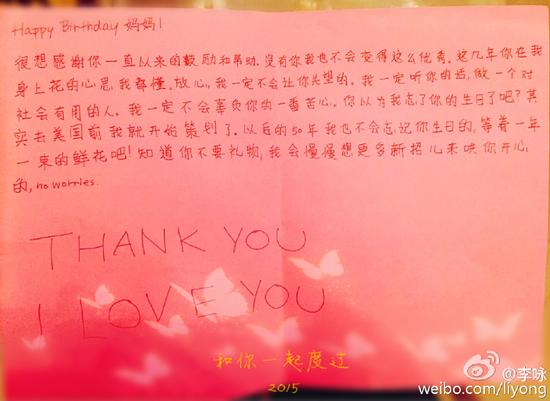 Happy Birthday 妈妈!
很想感谢你一直以来的鼓励和帮助。没有你我也不会变得这么优秀。这几年你在我
身上花的心思我都懂。放心,我一定不会让你失望的。我一定听你的话,做一个对
社会有用的人。我一定不会辜负你的一番苦心。你以为我忘了你的生日了吧?其
实去美国前我就开始策划了。以后的50年我也不会忘记你生日的,等着一年
一束的鲜花吧!知道你不要礼物,我会慢慢想更多新招儿来哄你开心
的, no worries.
THANK YOU
I LOVE YOU
和你一起度过
2015
@李咏
weibo.com/liyong